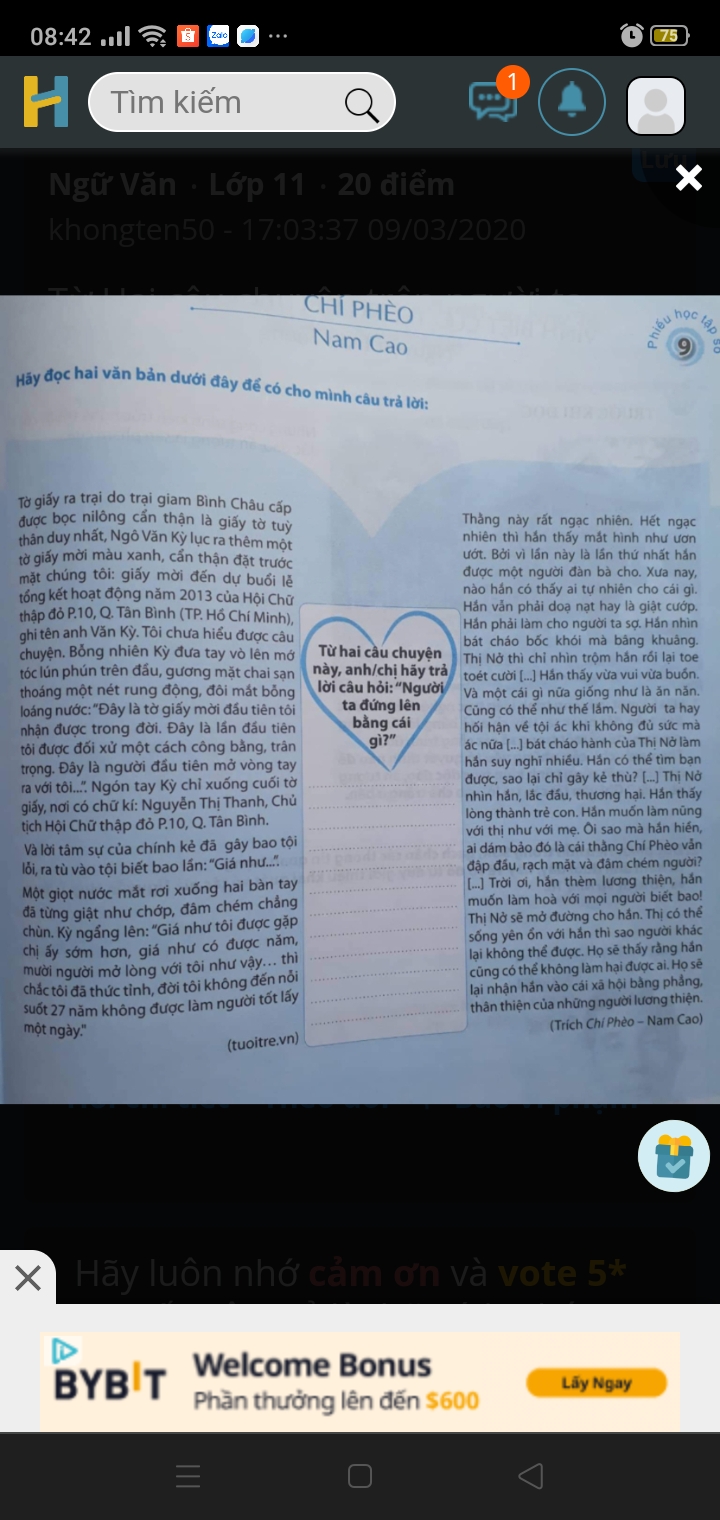 08:42
Zalo
75
Tìm kiếm
1
Ngữ Văn · Lớp 11 · 20 điểm
khongten50 - 17:03:37 09/03/2020
CHÍ PHÈO
Nam Cao
Phiếu học tập số
9
Hãy đọc hai văn bản dưới đây để có cho mình câu trả lời:
Tờ giấy ra trại do trại giam Bình Châu cấp
được bọc nilông cẩn thận là giấy tờ tuỳ
thân duy nhất, Ngô Văn Kỳ lục ra thêm một
tờ giấy mời màu xanh, cẩn thận đặt trước
mặt chúng tôi: giấy mời đến dự buổi lễ
tổng kết hoạt động năm 2013 của Hội Chữ
thập đỏ P.10, Q. Tân Bình (TP. Hồ Chí Minh),
ghi tên anh Văn Kỳ. Tôi chưa hiểu được câu
chuyện. Bỗng nhiên Kỳ đưa tay vò lên mớ
tóc lún phún trên đầu, gương mặt chai sạn
thoáng một nét rung động, đôi mắt bỗng
loáng nước: "Đây là tờ giấy mời đầu tiên tôi
nhận được trong đời. Đây là lần đầu tiên
tôi được đối xử một cách công bằng, trân
trọng. Đây là người đầu tiên mở vòng tay
ra với tôi...". Ngón tay Kỳ chỉ xuống cuối tờ
giấy, nơi có chữ kí: Nguyễn Thị Thanh, Chủ
tịch Hội Chữ thập đỏ P.10, Q. Tân Bình.
Và lời tâm sự của chính kẻ đã gây bao tội
lỗi, ra tù vào tội biết bao lần: "Giá như...".
Một giọt nước mắt rơi xuống hai bàn tay
đã từng giật như chớp, đâm chém chẳng
chùn. Kỳ ngẩng lên: "Giá như tôi được gặp
chị ấy sớm hơn, giá như có được năm,
mười người mở lòng với tôi như vậy... thì
chắc tôi đã thức tỉnh, đời tôi không đến nỗi
suốt 27 năm không được làm người tốt lấy
một ngày."
(tuoitre.vn)
Từ hai câu chuyện
này, anh/chị hãy trả
lời câu hỏi: "Người
ta đứng lên
bằng cái
gì?"
Thằng này rất ngạc nhiên. Hết ngạc
nhiên thì hắn thấy mắt hình như ươn
ướt. Bởi vì lần này là lần thứ nhất hắn
được một người đàn bà cho. Xưa nay,
nào hắn có thấy ai tự nhiên cho cái gì.
Hắn vẫn phải doạ nạt hay là giật cướp.
Hắn phải làm cho người ta sợ. Hắn nhìn
bát cháo bốc khói mà bâng khuâng.
Thị Nở thì chỉ nhìn trộm hắn rồi lại toe
toét cười [...] Hắn thấy vừa vui vừa buồn.
Và một cái gì nữa giống như là ăn năn.
Cũng có thể như thế lắm. Người ta hay
hối hận về tội ác khi không đủ sức mà
ác nữa [...] bát cháo hành của Thị Nở làm
hắn suy nghĩ nhiều. Hắn có thể tìm bạn
được, sao lại chỉ gây kẻ thù? [...] Thị Nở
nhìn hắn, lắc đầu, thương hại. Hắn thấy
lòng thành trẻ con. Hắn muốn làm nũng
với thị như với mẹ. Ôi sao mà hắn hiền,
ai dám bảo đó là cái thằng Chí Phèo vẫn
đập đầu, rạch mặt và đâm chém người?
[...] Trời ơi, hắn thèm lương thiện, hắn
muốn làm hoà với mọi người biết bao!
Thị Nở sẽ mở đường cho hắn. Thị có thể
sống yên ổn với hắn thì sao người khác
lại không thể được. Họ sẽ thấy rằng hắn
cũng có thể không làm hại được ai. Họ sẽ
lại nhận hắn vào cái xã hội bằng phẳng,
thân thiện của những người lương thiện.
(Trích Chí Phèo – Nam Cao)
Hãy luôn nhớ cảm ơn và vote 5*
BYBIT
Welcome Bonus
Phần thưởng lên đến $600
Lấy Ngay